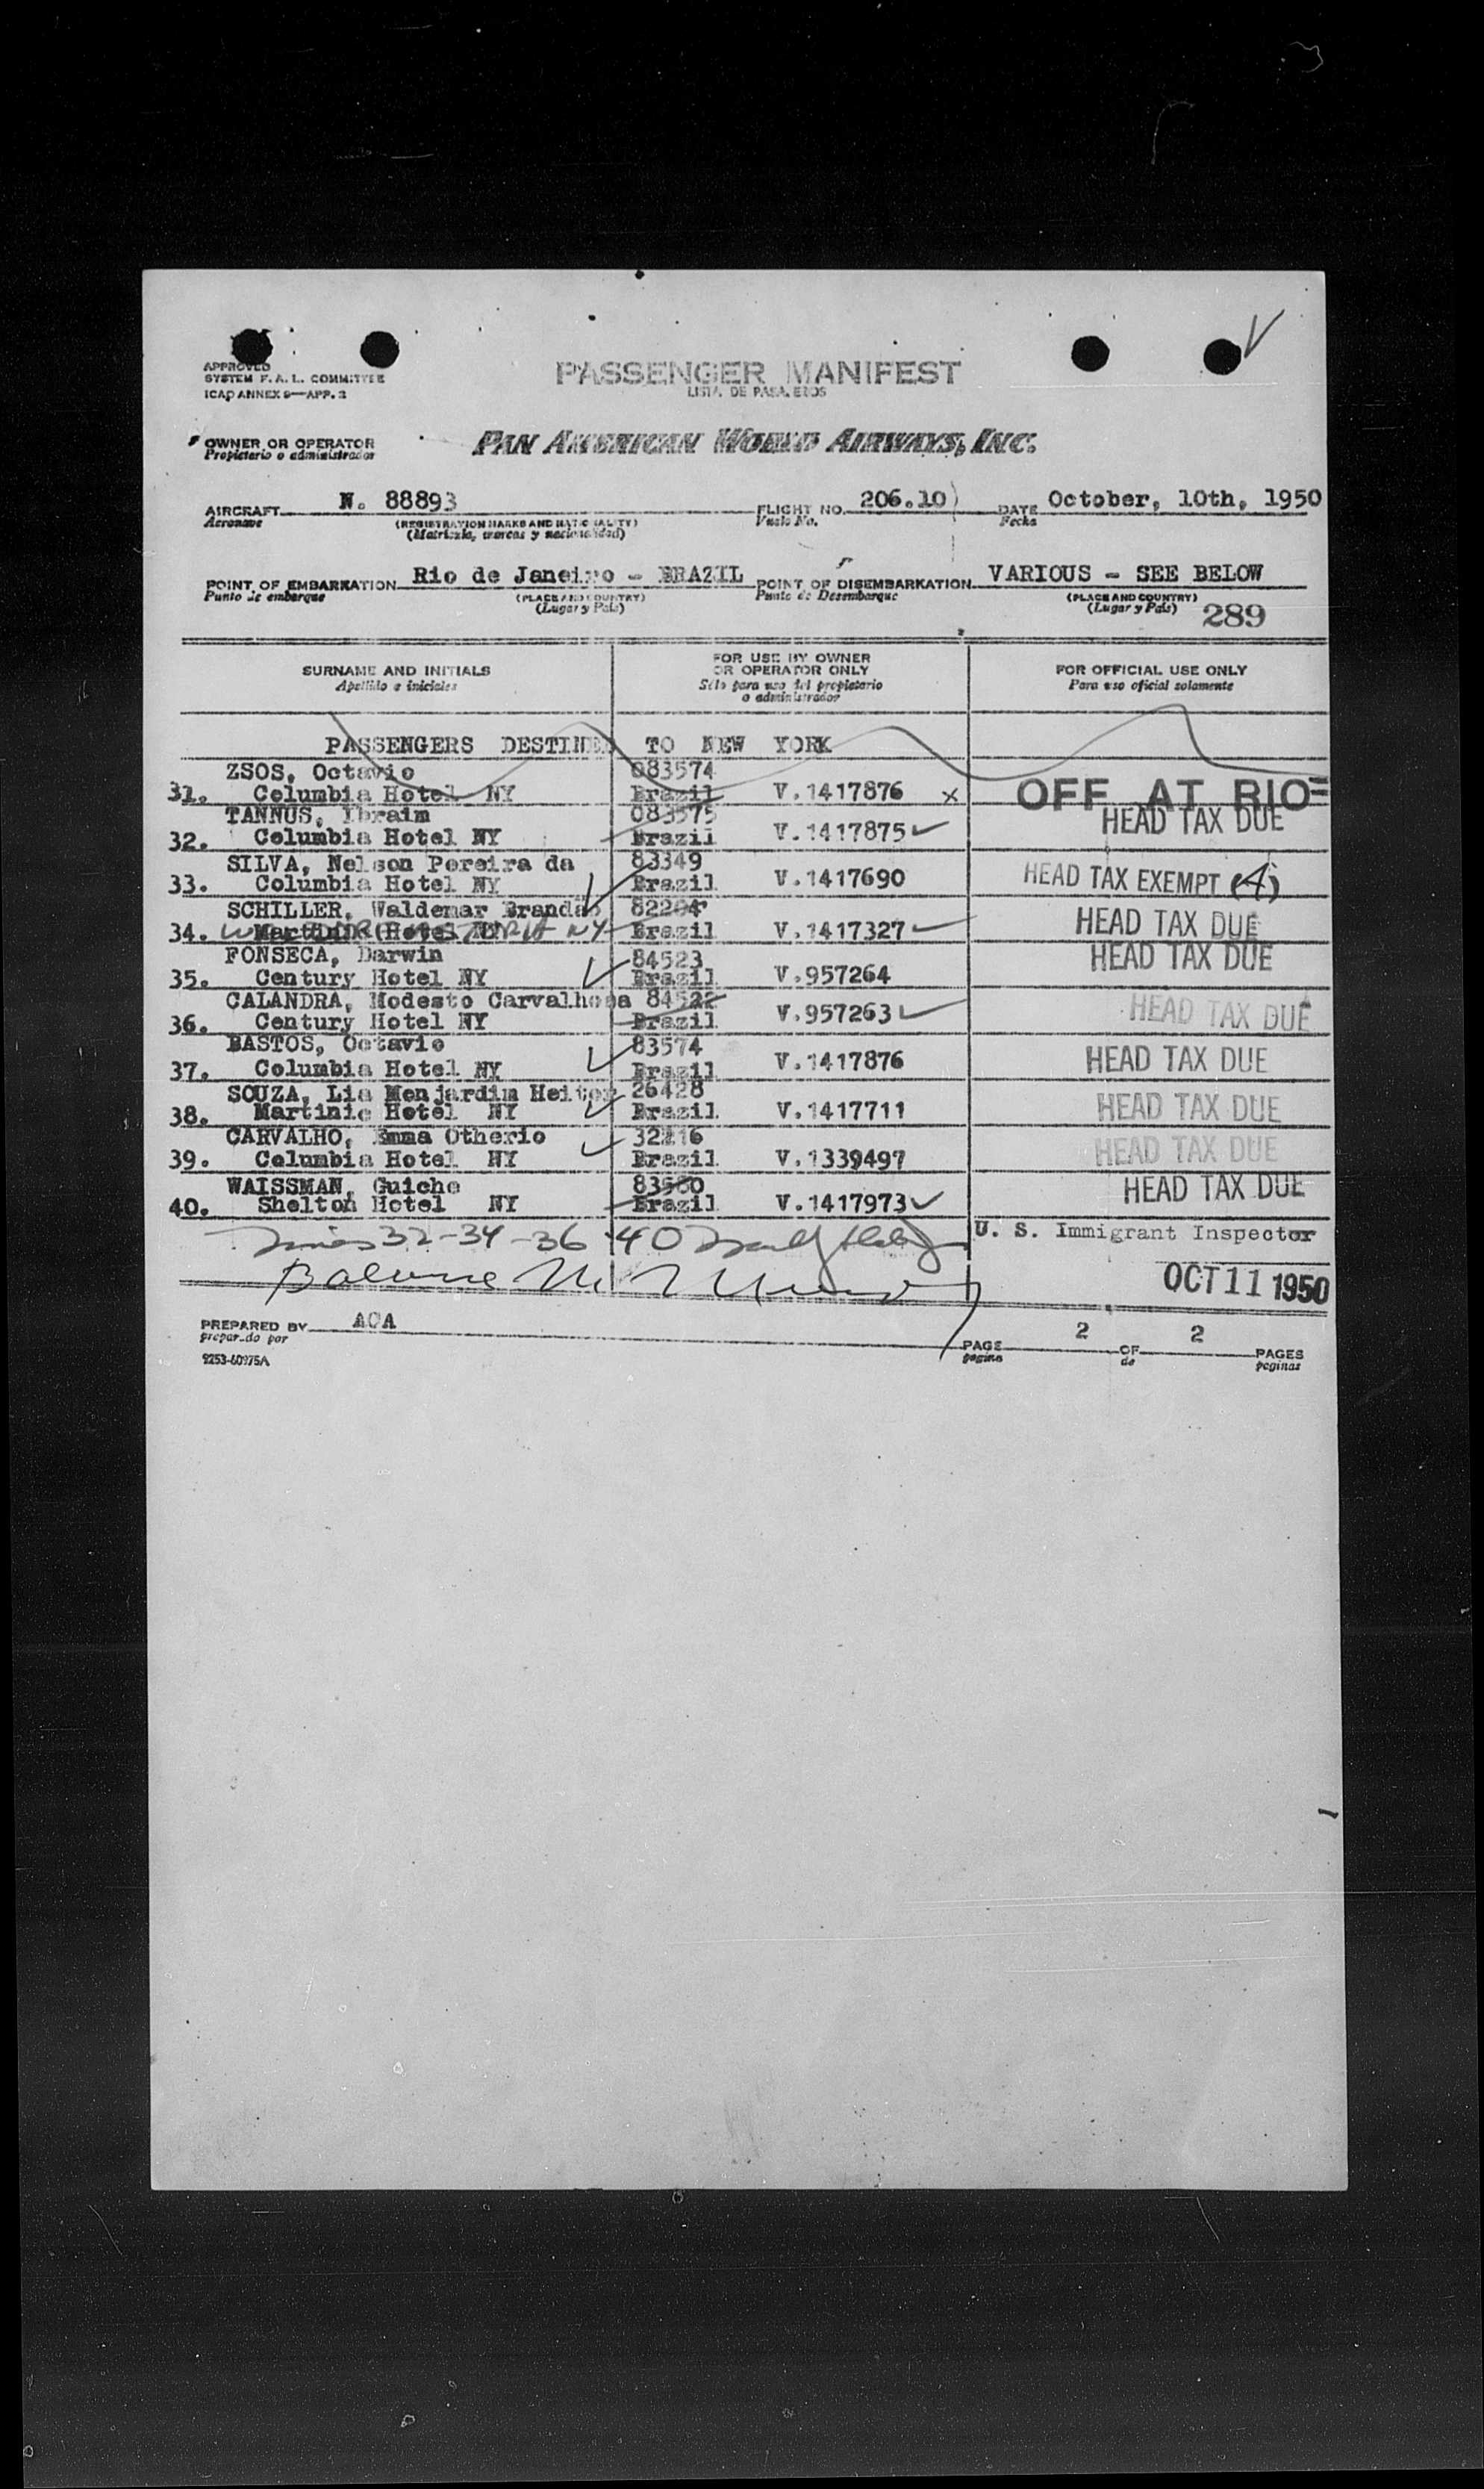 APPROVED
SYSTEM F.A.L. COMMITTEE
ICAO ANNEX 9—APP. 2
PASSENGER MANIFEST
LISTA DE PASAJEROS
OWNER OR OPERATOR
Propietario o administrador
PAN AMERICAN WORLD AIRWAYS, INC.
AIRCRAFT N. 88893 FLIGHT NO. 206.10 DATE October, 10th, 1950
Aeronave (REGISTRATION MARKS AND NATIONALITY) Vuelo No. Fecha
(Matrícula, marcas y nacionalidad)
POINT OF EMBARKATION Rio de Janeiro - BRAZIL POINT OF DISEMBARKATION VARIOUS - SEE BELOW
Punto de embarque (PLACE AND COUNTRY) Punto de Desembarque (PLACE AND COUNTRY)
(Lugar y País) (Lugar y País) 289
SURNAME AND INITIALS
Apellido e iniciales
FOR USE BY OWNER
OR OPERATOR ONLY
Sólo para uso del propietario
o administrador
FOR OFFICIAL USE ONLY
Para uso oficial solamente
PASSENGERS DESTINED TO NEW YORK
ZSOS, Octavio 083574
31. Columbia Hotel NY Brazil V.1417876 x OFF AT RIO
TANNUS, Ibraim 083575 HEAD TAX DUE
32. Columbia Hotel NY Brazil V.1417875
SILVA, Nelson Pereira da 83349
33. Columbia Hotel NY Brazil V.1417690 HEAD TAX EXEMPT (4)
SCHILLER, Waldemar Brandão 82204
34. Hotel NY Brazil V.1417327 HEAD TAX DUE
FONSECA, Darwin 84523 HEAD TAX DUE
35. Century Hotel NY Brazil V.957264
CALANDRA, Modesto Carvalhosa 84522
36. Century Hotel NY Brazil V.957263 HEAD TAX DUE
BASTOS, Octavio 83574
37. Columbia Hotel NY Brazil V.1417876 HEAD TAX DUE
SOUZA, Lia Menjardim Heitor 26428
38. Martinic Hotel NY Brazil V.1417711 HEAD TAX DUE
CARVALHO, Emma Otherio 32216
39. Columbia Hotel NY Brazil V.1339497 HEAD TAX DUE
WAISSMAN, Guiche 83580
40. Shelton Hotel NY Brazil V.1417973 HEAD TAX DUE
32-34-36-40
U. S. Immigrant Inspector
Balance
OCT 11 1950
PREPARED BY ACA
preparado por
PAGE 2 OF 2 PAGES
pagina de paginas
9253-60975A